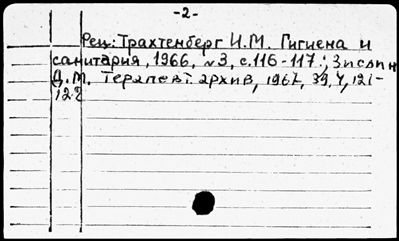 -2-
Рец: Трахтенберг И.М. Гигиена и
санитария, 1966, №3, с.116-117.; Зислин
Д.М. Терапевт. архив, 1967, 39, 4, 121-
122